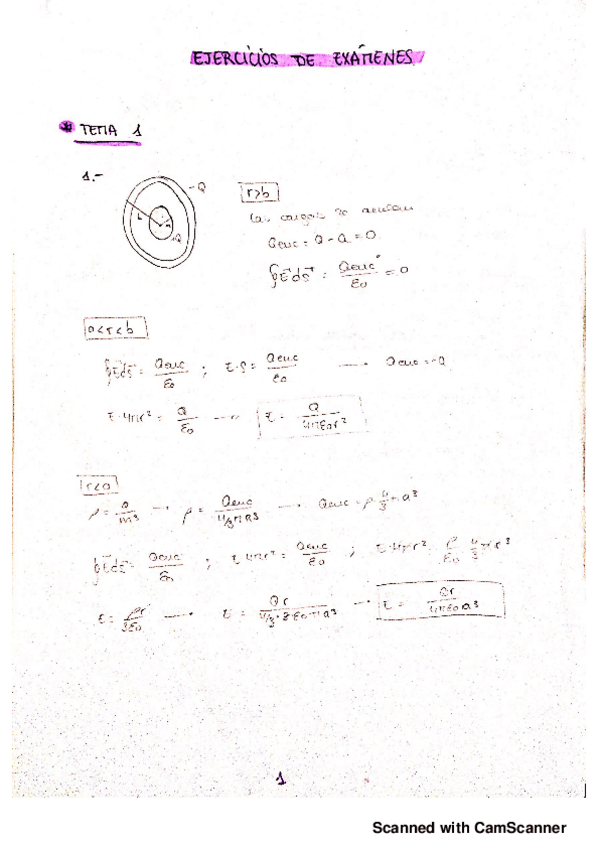 EJERCICIOS DE EXÁMENES
* TEMA 1
1.-
-Q
b
a
Q
r>b
Las cargas se anulan
Qenc = Q - Q = 0
∮E⃗dS⃗ = Qenc/ε0 = 0
a<r<b
∮E⃗dS⃗ = Qenc/ε0 ; E·S = Qenc/ε0 → Qenc = Q
E·4πr² = Q/ε0 → E = Q/4πε0r²
r<a
ρ = Q/m³ → ρ = Qenc/4/3πR³ → Qenc = ρ 4/3 π a³
∮E⃗dS⃗ = Qenc/ε0 ; E 4πr² = Qenc/ε0 ; E·4πr² = ρ/ε0 4/3 π r³
E = ρr/3ε0 → E = Qr/4/3·3ε0πa³ → E = Qr/4πε0a³
1
Scanned with CamScanner